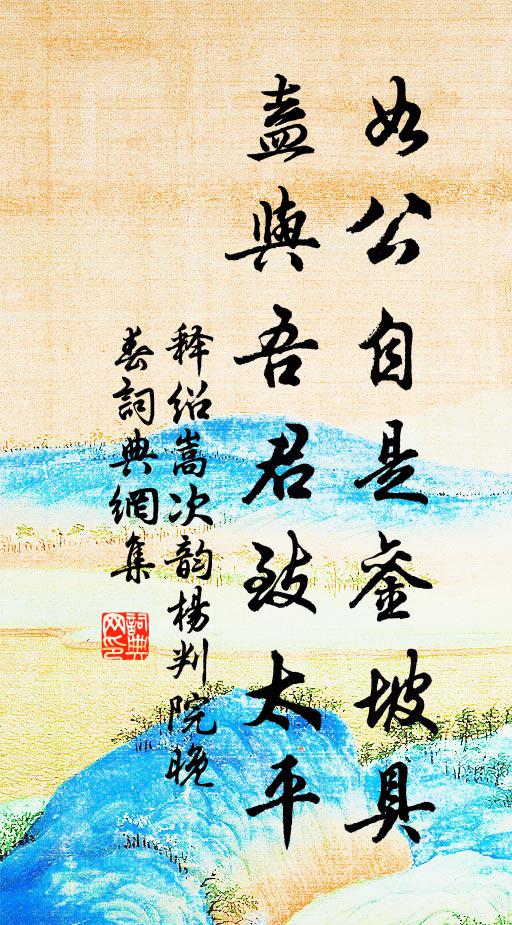 如公自是銮坡具
盍與吾君致太平
释绍嵩次韵楊判院晚
春詞典網集
詞典
网印